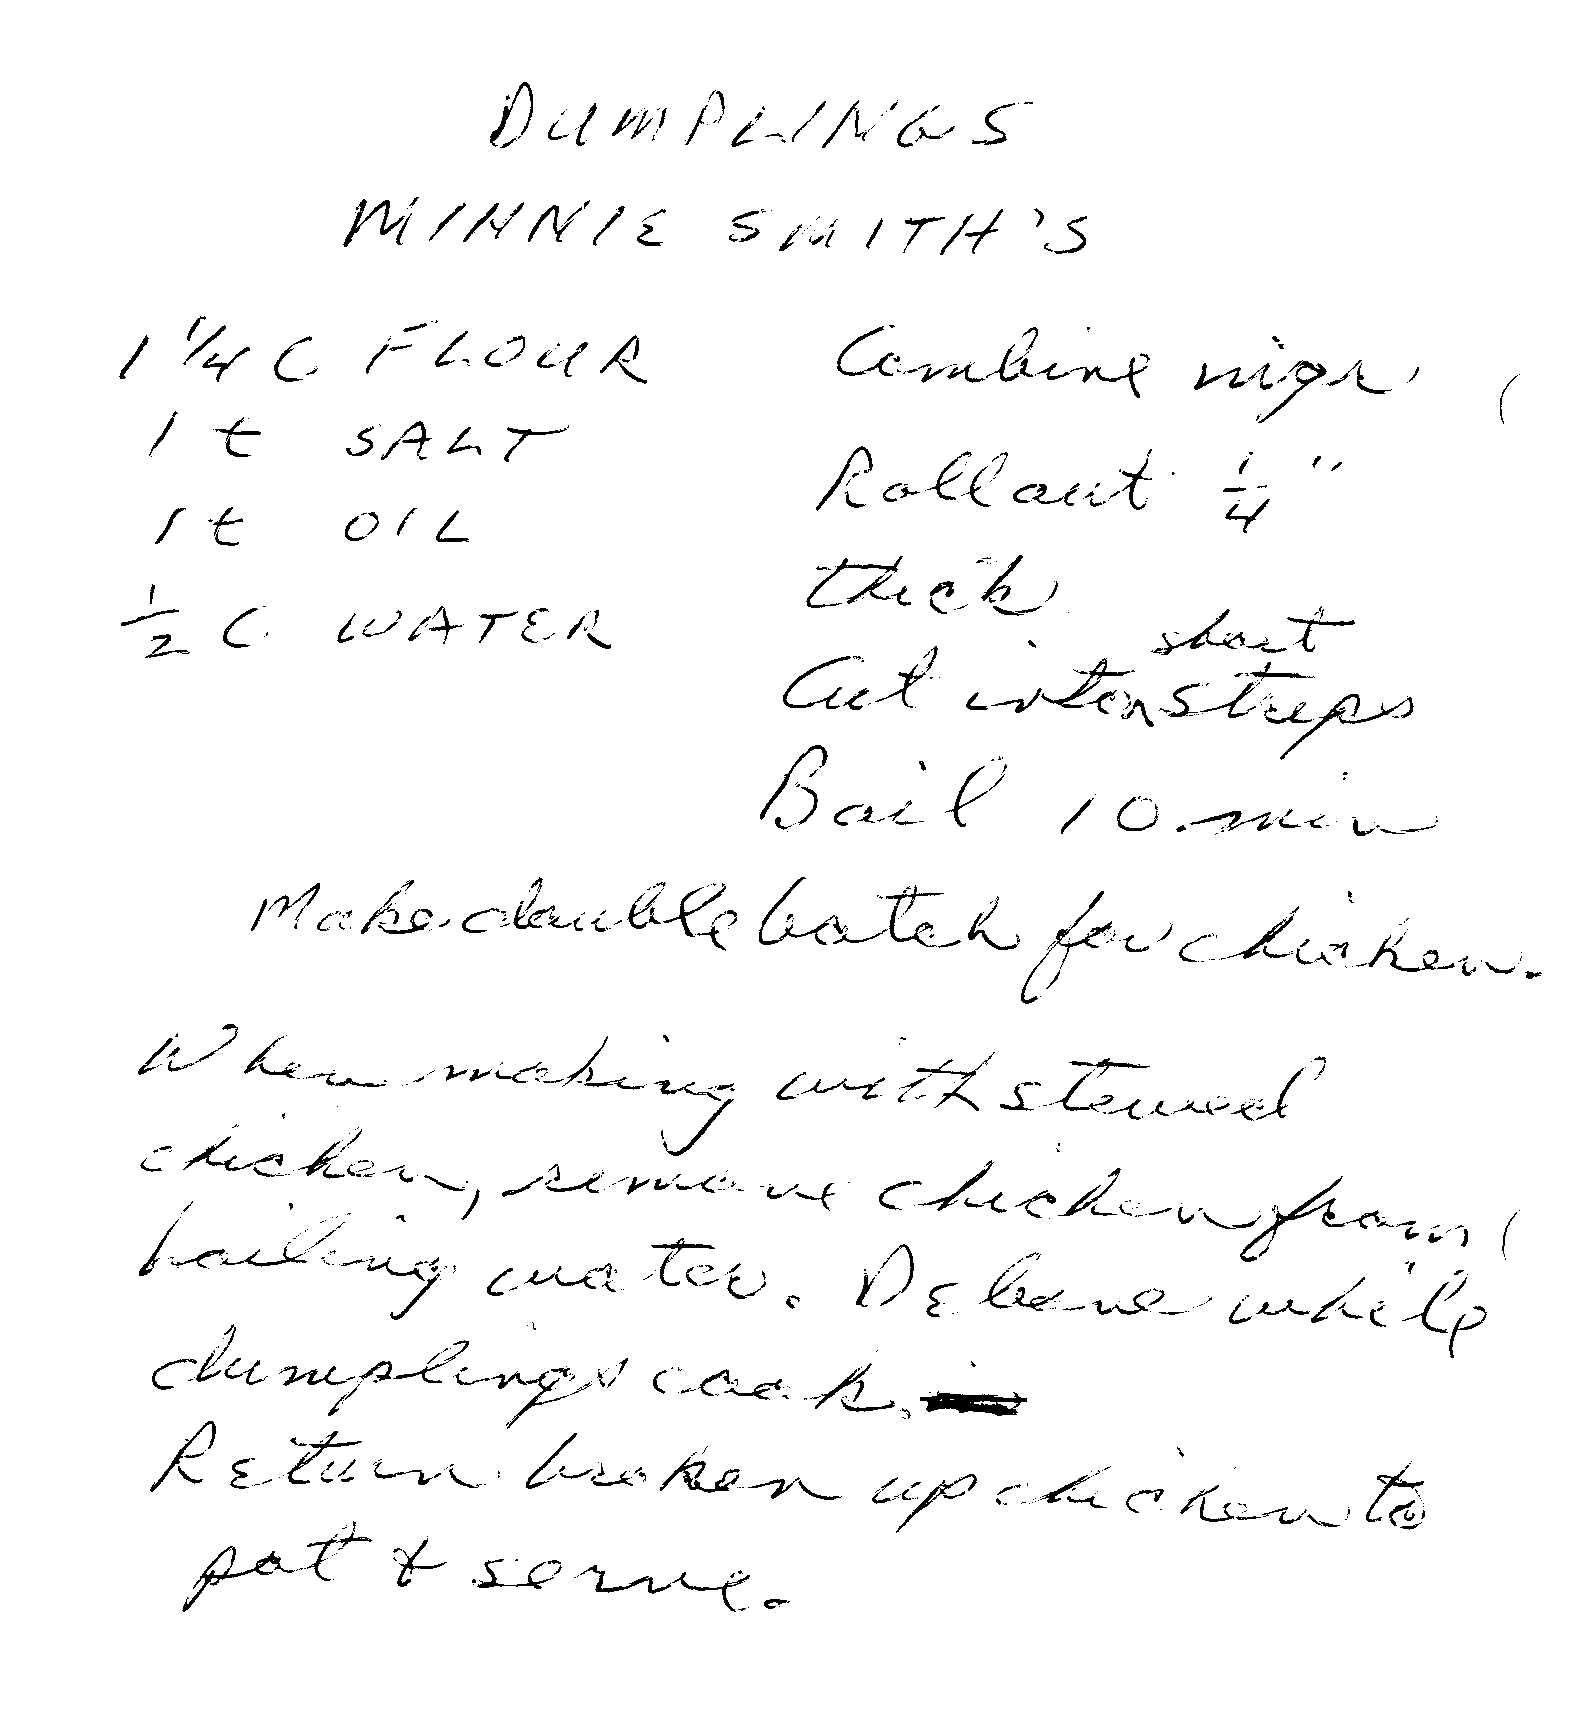 DUMPLINGS
MINNIE SMITH'S
1 1/4 C FLOUR
1 t SALT
1 t OIL
1/2 C WATER
Combine
Roll out 1/4"
thick
Cut into short strips
Boil 10 min
Make double batch for chicken.
When making with stewed
chicken, remove chicken from
boiling water. Debone while
dumplings cook.
Return broken up chicken to
pot & serve.